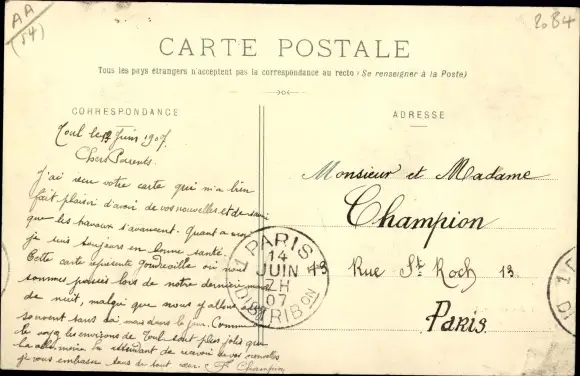 AA
(54)
2084
CARTE POSTALE
Tous les pays étrangers n'acceptent pas la correspondance au recto (Se renseigner à la Poste)
CORRESPONDANCE
Toul le Juin 1907.
Chers Parents.
J'ai reçu votre carte qui m'a bien
fait plaisir d'avoir de vos nouvelles et de
que les travaux s'avancent. Quant a moi
je suis toujours en bonne santé.
Cette carte représente Gondreville où nous
sommes passés lors de notre dernier
de nuit, malgré que nous y allons
souvent sans mais dans le jour. Comme
tu vois les environs de Toul sont plus jolis que
la En attendant de recevoir de vos nouvelles
je vous embrasse tous du tout cœur. Champion
ADRESSE
Monsieur et Madame
Champion
Rue St. Roch 13.
Paris
1 PARIS 1
14
JUIN
7H
07
DISTRIBON